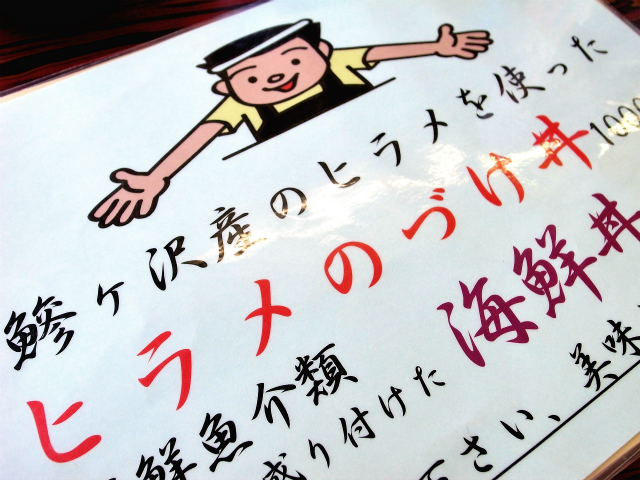 鯵ヶ沢産のヒラメを使った
ヒラメのづけ丼 1000
鮮魚介類
盛り付けた 海鮮丼
下さい、美味